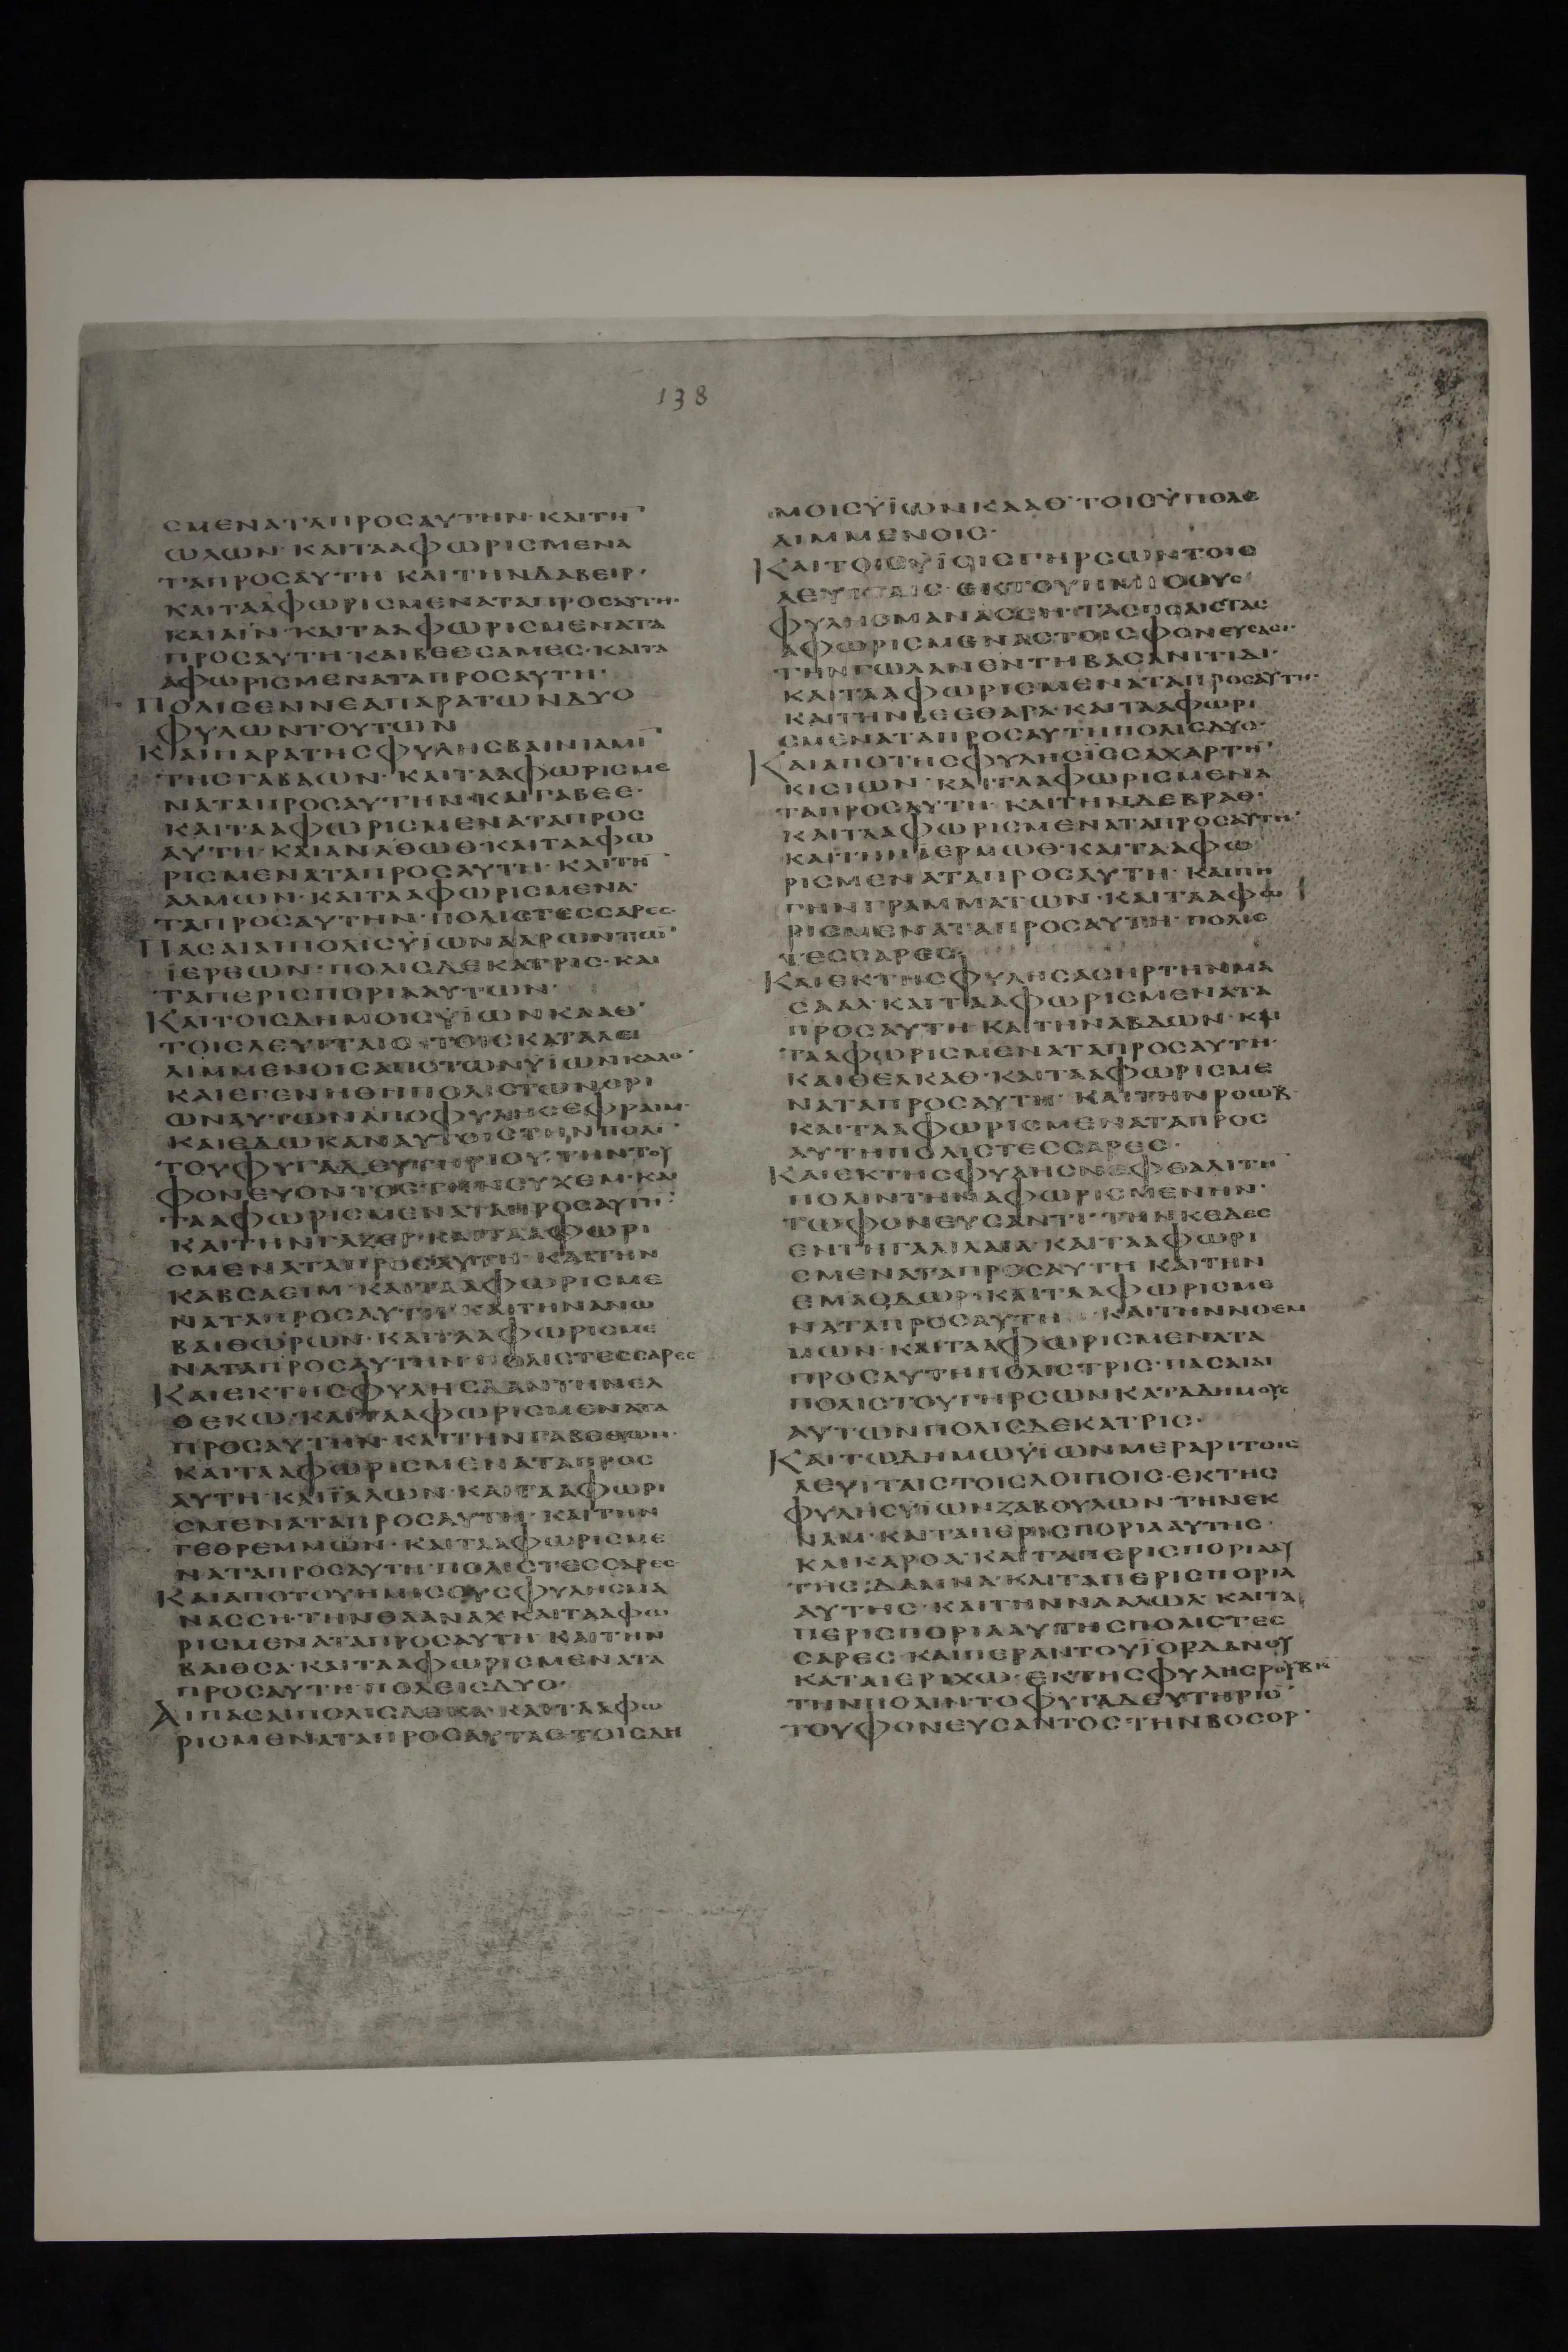 138
ϹΜΕΝΑΤΑΠΡΟϹΑΥΤΗΝ·ΚΑΙΤΗ¯
ΩΛΩΝ·ΚΑΙΤΑΑΦΩΡΙϹΜΕΝΑ
ΤΑΠΡΟϹΑΥΤΗ ΚΑΙΤΗΝΔΑΒΕΙΡ·
ΚΑΙΤΑΑΦΩΡΙϹΜΕΝΑΤΑΠΡΟϹΑΥΤΗ·
ΚΑΙΑΪΝ·ΚΑΙΤΑΑΦΩΡΙϹΜΕΝΑΤΑ
ΠΡΟϹΑΥΤΗ·ΚΑΙΒΕΘϹΑΜΕϹ·ΚΑΙΤΑ
ΑΦΩΡΙϹΜΕΝΑΤΑΠΡΟϹΑΥΤΗ·
ΠΟΛΙϹΕΝΝΕΑΠΑΡΑΤΩΝΔΥΟ
ΦΥΛΩΝΤΟΥΤΩΝ
ΚΑΙΠΑΡΑΤΗϹΦΥΛΗϹΒΑΙΝΙΑΜΙ¯
ΤΗϹΓΑΒΑΩΝ·ΚΑΙΤΑΑΦΩΡΙϹΜΕ
ΝΑΤΑΠΡΟϹΑΥΤΗΝ·ΚΑΙΓΑΒΕΕ·
ΚΑΙΤΑΑΦΩΡΙϹΜΕΝΑΤΑΠΡΟϹ
ΑΥΤΗ·ΚΑΙΑΝΑΘΩΘ·ΚΑΙΤΑΑΦΩ
ΡΙϹΜΕΝΑΤΑΠΡΟϹΑΥΤΗ·ΚΑΙΤΗ¯
ΑΛΜΩΝ·ΚΑΙΤΑΑΦΩΡΙϹΜΕΝΑ
ΤΑΠΡΟϹΑΥΤΗΝ·ΠΟΛΙϹΤΕϹϹΑΡΕϹ·
ΠΑϹΑΙΑΙΠΟΛΙϹΫΙΩΝΑΑΡΩΝΤΩ¯
ΪΕΡΕΩΝ·ΠΟΛΙϹΔΕΚΑΤΡΙϹ·ΚΑΙ
ΤΑΠΕΡΙϹΠΟΡΙΑΑΥΤΩΝ·
ΚΑΙΤΟΙϹΔΗΜΟΙϹΫΙΩΝΚΑΑΘ·
ΤΟΙϹΛΕΥΙΤΑΙϹ·ΤΟΙϹΚΑΤΑΛΕΙ
ΛΙΜΜΕΝΟΙϹΑΠΟΤΩΝΫΙΩΝΚΑΑΘ·
ΚΑΙΕΓΕΝΗΘΗΠΟΛΙϹΤΩΝΟΡΙ
ΩΝΑΥΤΩΝΑΠΟΦΥΛΗϹΕΦΡΑΙΜ·
ΚΑΙΕΔΩΚΑΝΑΥΤΟΙϹΤΗΝΠΟΛΙ¯
ΤΟΥΦΥΓΑΔΕΥΤΗΡΙΟΥ·ΤΗΝΤΟΥ
ΦΟΝΕΥΟΝΤΟϹΤΗΝϹΥΧΕΜ·ΚΑΙ
ΤΑΑΦΩΡΙϹΜΕΝΑΤΑΠΡΟϹΑΥΤΗ·
ΚΑΙΤΗΝΓΑΖΕΡ·ΚΑΙΤΑΑΦΩΡΙ
ϹΜΕΝΑΤΑΠΡΟϹΑΥΤΗ·ΚΑΙΤΗΝ
ΚΑΒϹΑΕΙΜ·ΚΑΙΤΑΑΦΩΡΙϹΜΕ
ΝΑΤΑΠΡΟϹΑΥΤΗ·ΚΑΙΤΗΝΑΝΩ
ΒΑΙΘΩΡΩΝ·ΚΑΙΤΑΑΦΩΡΙϹΜΕ
ΝΑΤΑΠΡΟϹΑΥΤΗΝ·ΠΟΛΙϹΤΕϹϹΑΡΕϹ
ΚΑΙΕΚΤΗϹΦΥΛΗϹΔΑΝΤΗΝΕΛ
ΘΕΚΩ·ΚΑΙΤΑΑΦΩΡΙϹΜΕΝΑΤΑ
ΠΡΟϹΑΥΤΗΝ·ΚΑΙΤΗΝΓΑΒΕΘΩΝ·
ΚΑΙΤΑΑΦΩΡΙϹΜΕΝΑΤΑΠΡΟϹ
ΑΥΤΗ·ΚΑΙΪΑΛΩΝ·ΚΑΙΤΑΑΦΩΡΙ
ϹΜΕΝΑΤΑΠΡΟϹΑΥΤΗ·ΚΑΙΤΗΝ
ΓΕΘΡΕΜΜΩΝ·ΚΑΙΤΑΑΦΩΡΙϹΜΕ
ΝΑΤΑΠΡΟϹΑΥΤΗ·ΠΟΛΙϹΤΕϹϹΑΡΕϹ
ΚΑΙΑΠΟΤΟΥΗΜΙϹΟΥϹΦΥΛΗϹΜΑ
ΝΑϹϹΗ·ΤΗΝΘΑΑΝΑΧ·ΚΑΙΤΑΑΦΩ
ΡΙϹΜΕΝΑΤΑΠΡΟϹΑΥΤΗ·ΚΑΙΤΗΝ
ΒΑΙΘϹΑ·ΚΑΙΤΑΑΦΩΡΙϹΜΕΝΑΤΑ
ΠΡΟϹΑΥΤΗ·ΠΟΛΕΙϹΔΥΟ·
ΑΙΠΑϹΑΙΠΟΛΙϹΔΕΚΑ·ΚΑΙΤΑΑΦΩ
ΡΙϹΜΕΝΑΤΑΠΡΟϹΑΥΤΑϹ·ΤΟΙϹΔΗ
ΜΟΙϹΫΪΩΝΚΑΑΘ·ΤΟΙϹΫΠΟΛΕ
ΛΙΜΜΕΝΟΙϹ·
ΚΑΙΤΟΙϹΫΪΟΙϹΓΗΡϹΩΝΤΟΙϹ
ΛΕΥΙΤΑΙϹ·ΕΚΤΟΥΗΜΙϹΟΥϹ
ΦΥΛΗϹΜΑΝΑϹϹΗ·ΤΑϹΠΟΛΙϹΤΑϹ
ΑΦΩΡΙϹΜΕΝΑϹΤΟΙϹΦΟΝΕΥϹΑϹΙ·
ΤΗΝΓΩΛΑΝΕΝΤΗΒΑϹΑΝΙΤΙΔΙ·
ΚΑΙΤΑΑΦΩΡΙϹΜΕΝΑΤΑΠΡΟϹΑΥΤΗ·
ΚΑΙΤΗΝΒΕΕΘΑΡΑ·ΚΑΙΤΑΑΦΩΡΙ
ϹΜΕΝΑΤΑΠΡΟϹΑΥΤΗΠΟΛΙϹΔΥΟ·
ΚΑΙΑΠΟΤΗϹΦΥΛΗϹΪϹϹΑΧΑΡΤΗ¯
ΚΙϹΙΩΝ·ΚΑΙΤΑΑΦΩΡΙϹΜΕΝΑ
ΤΑΠΡΟϹΑΥΤΗ·ΚΑΙΤΗΝΔΕΒΡΑΘ·
ΚΑΙΤΑΑΦΩΡΙϹΜΕΝΑΤΑΠΡΟϹΑΥΤΗ·
ΚΑΙΤΗΝΪΕΡΜΩΘ·ΚΑΙΤΑΑΦΩ
ΡΙϹΜΕΝΑΤΑΠΡΟϹΑΥΤΗ·ΚΑΙΠΗ
ΓΗΝΓΡΑΜΜΑΤΩΝ·ΚΑΙΤΑΑΦΩ
ΡΙϹΜΕΝΑΤΑΠΡΟϹΑΥΤΗ·ΠΟΛΙϹ
ΤΕϹϹΑΡΕϹ·
ΚΑΙΕΚΤΗϹΦΥΛΗϹΑϹΗΡΤΗΝΜΑ
ϹΑΑΛ·ΚΑΙΤΑΑΦΩΡΙϹΜΕΝΑΤΑ
ΠΡΟϹΑΥΤΗ·ΚΑΙΤΗΝΑΒΔΩΝ·ΚΑΙ
ΤΑΑΦΩΡΙϹΜΕΝΑΤΑΠΡΟϹΑΥΤΗ·
ΚΑΙΘΕΛΚΑΘ·ΚΑΙΤΑΑΦΩΡΙϹΜΕ
ΝΑΤΑΠΡΟϹΑΥΤΗ·ΚΑΙΤΗΝΡΟΩΒ·
ΚΑΙΤΑΑΦΩΡΙϹΜΕΝΑΤΑΠΡΟϹ
ΑΥΤΗΠΟΛΙϹΤΕϹϹΑΡΕϹ·
ΚΑΙΕΚΤΗϹΦΥΛΗϹΝΕΦΘΑΛΙΤΗ¯
ΠΟΛΙΝΤΗΝΑΦΩΡΙϹΜΕΝΗΝ·
ΤΩΦΟΝΕΥϹΑΝΤΙ·ΤΗΝΚΕΔΕϹ
ΕΝΤΗΓΑΛΙΛΑΙΑ·ΚΑΙΤΑΑΦΩΡΙ
ϹΜΕΝΑΤΑΠΡΟϹΑΥΤΗ ΚΑΙΤΗΝ
ΕΜΑΘΔΩΡ·ΚΑΙΤΑΑΦΩΡΙϹΜΕ
ΝΑΤΑΠΡΟϹΑΥΤΗ ΚΑΙΤΗΝΝΟΕΜ
ΜΩΝ·ΚΑΙΤΑΑΦΩΡΙϹΜΕΝΑΤΑ
ΠΡΟϹΑΥΤΗΠΟΛΙϹΤΡΙϹ·ΠΑϹΑΙΑΙ
ΠΟΛΙϹΤΟΥΓΗΡϹΩΝΚΑΤΑΔΗΜΟΥϹ
ΑΥΤΩΝΠΟΛΙϹΔΕΚΑΤΡΙϹ·
ΚΑΙΤΩΔΗΜΩΫΪΩΝΜΕΡΑΡΙΤΟΙϹ
ΛΕΥΙΤΑΙϹΤΟΙϹΛΟΙΠΟΙϹ·ΕΚΤΗϹ
ΦΥΛΗϹΫΪΩΝΖΑΒΟΥΛΩΝ·ΤΗΝΕΚ
ΝΑΜ·ΚΑΙΤΑΠΕΡΙϹΠΟΡΙΑΑΥΤΗϹ·
ΚΑΙΚΑΡΘΑ·ΚΑΙΤΑΠΕΡΙϹΠΟΡΙΑΑΥ
ΤΗϹ·ΔΑΜΝΑ·ΚΑΙΤΑΠΕΡΙϹΠΟΡΙΑ
ΑΥΤΗϹ·ΚΑΙΤΗΝΝΑΑΛΩΛ·ΚΑΙΤΑ
ΠΕΡΙϹΠΟΡΙΑΑΥΤΗϹΠΟΛΙϹΤΕϹ
ϹΑΡΕϹ·ΚΑΙΠΕΡΑΝΤΟΥΪΟΡΔΑΝΟΥ
ΚΑΤΑΙΕΡΙΧΩ·ΕΚΤΗϹΦΥΛΗϹΡΟΥΒΗ
ΤΗΝΠΟΛΙΝ·ΤΟΦΥΓΑΔΕΥΤΗΡΙΟ¯
ΤΟΥΦΟΝΕΥϹΑΝΤΟϹ·ΤΗΝΒΟϹΟΡ·